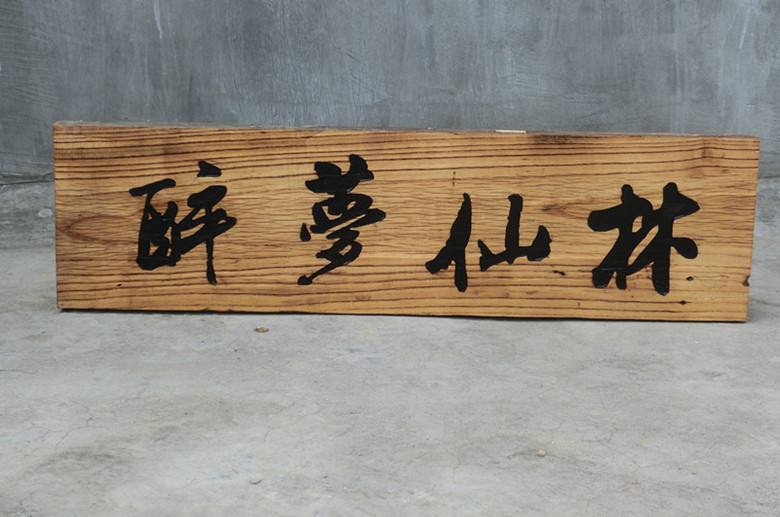 醉夢仙林